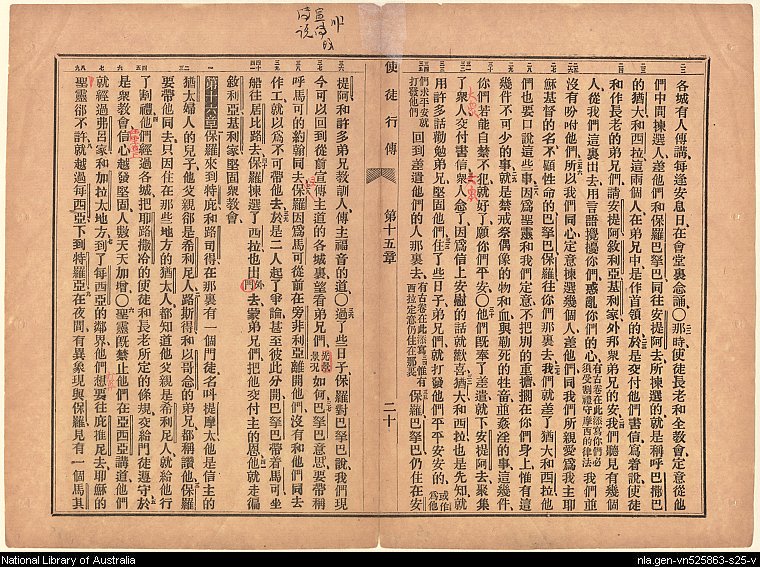 非
宣傳的
詩說
各城有人傳講每逢安息日在會堂裏念誦〇那時使徒長老和全教會定意從他
們中間揀選人差他們和保羅巴拏巴同往安提阿去所揀選的就是稱呼巴撒巴
的猶大和西拉這兩個人在弟兄中是作首領的於是交付他們書信寫着說使徒
和作長老的弟兄們請安提阿敘利亞基利家外邦衆弟兄的安我們聽見有幾個
人從我們這裏出去用言語攪擾你們惑亂你們的心有古卷在此添寫你們必須受割禮守摩西的律法我們並
沒有吩咐他們所以我們同心定意揀選幾個人差他們同我們所親愛爲我主耶
穌基督的名不顧性命的巴拏巴保羅往你們那裏去我們就差了猶大和西拉他
們也要口說這些事因爲聖靈和我們定意不把別的重擔擱在你們身上惟有這
幾件不可少的事就是禁戒祭偶像的物和血與勒死的牲畜並姦淫的事這幾件
你們若能自禁不犯就好了願你們平安〇他們既奉了差遣就下安提阿去聚集
了衆人交付書信衆人念了因爲信上安慰的話就歡喜猶大和西拉也是先知就
用許多話勸勉弟兄堅固他們住了些日子弟兄們就打發他們平平安安的或作爲他
們求平安就打發他們回到差遣他們的人那裏去有古卷在此添寫惟有西拉定意仍住在那裏保羅巴拏巴仍住在安
使徒行傳
第十五章
二十
提阿和許多弟兄教訓人傳主福音的道〇過了些日子保羅對巴拏巴說我們現
今可以回到從前宣傳主道的各城裏望看弟兄們景況如何巴拏巴意思要帶稱
呼馬可的約翰同去保羅因爲馬可從前在旁非利亞離開他們沒有和他們同去
作工就以爲不可帶他去於是二人起了爭論甚至彼此分開巴拏巴帶着馬可坐
船往居比路去保羅揀選了西拉也出去蒙弟兄們把他交付主的恩他就走徧
敘利亞基利家堅固衆教會
第十六章保羅來到特庇和路司得在那裏有一個門徒名叫提摩太他是信主的
猶太婦人的兒子他父親卻是希利尼人路斯得和以哥念的弟兄都稱讚他保羅
要帶他同去只因住在那些地方的猶太人都知道他父親是希利尼人就給他行
了割禮他們經過各城把耶路撒冷的使徒和長老所定的條規交給門徒遵守於
是衆教會信心越發堅固人數天天加增〇聖靈既禁止他們在亞西亞講道他們
就經過弗呂家和加拉太地方到了每西亞的鄰界他們想要往庇推尼去耶穌的
聖靈卻不許就越過每西亞下到特羅亞在夜間有異象現與保羅見有一個馬其
National Library of Australia
nla.gen-vn525863-s25-v